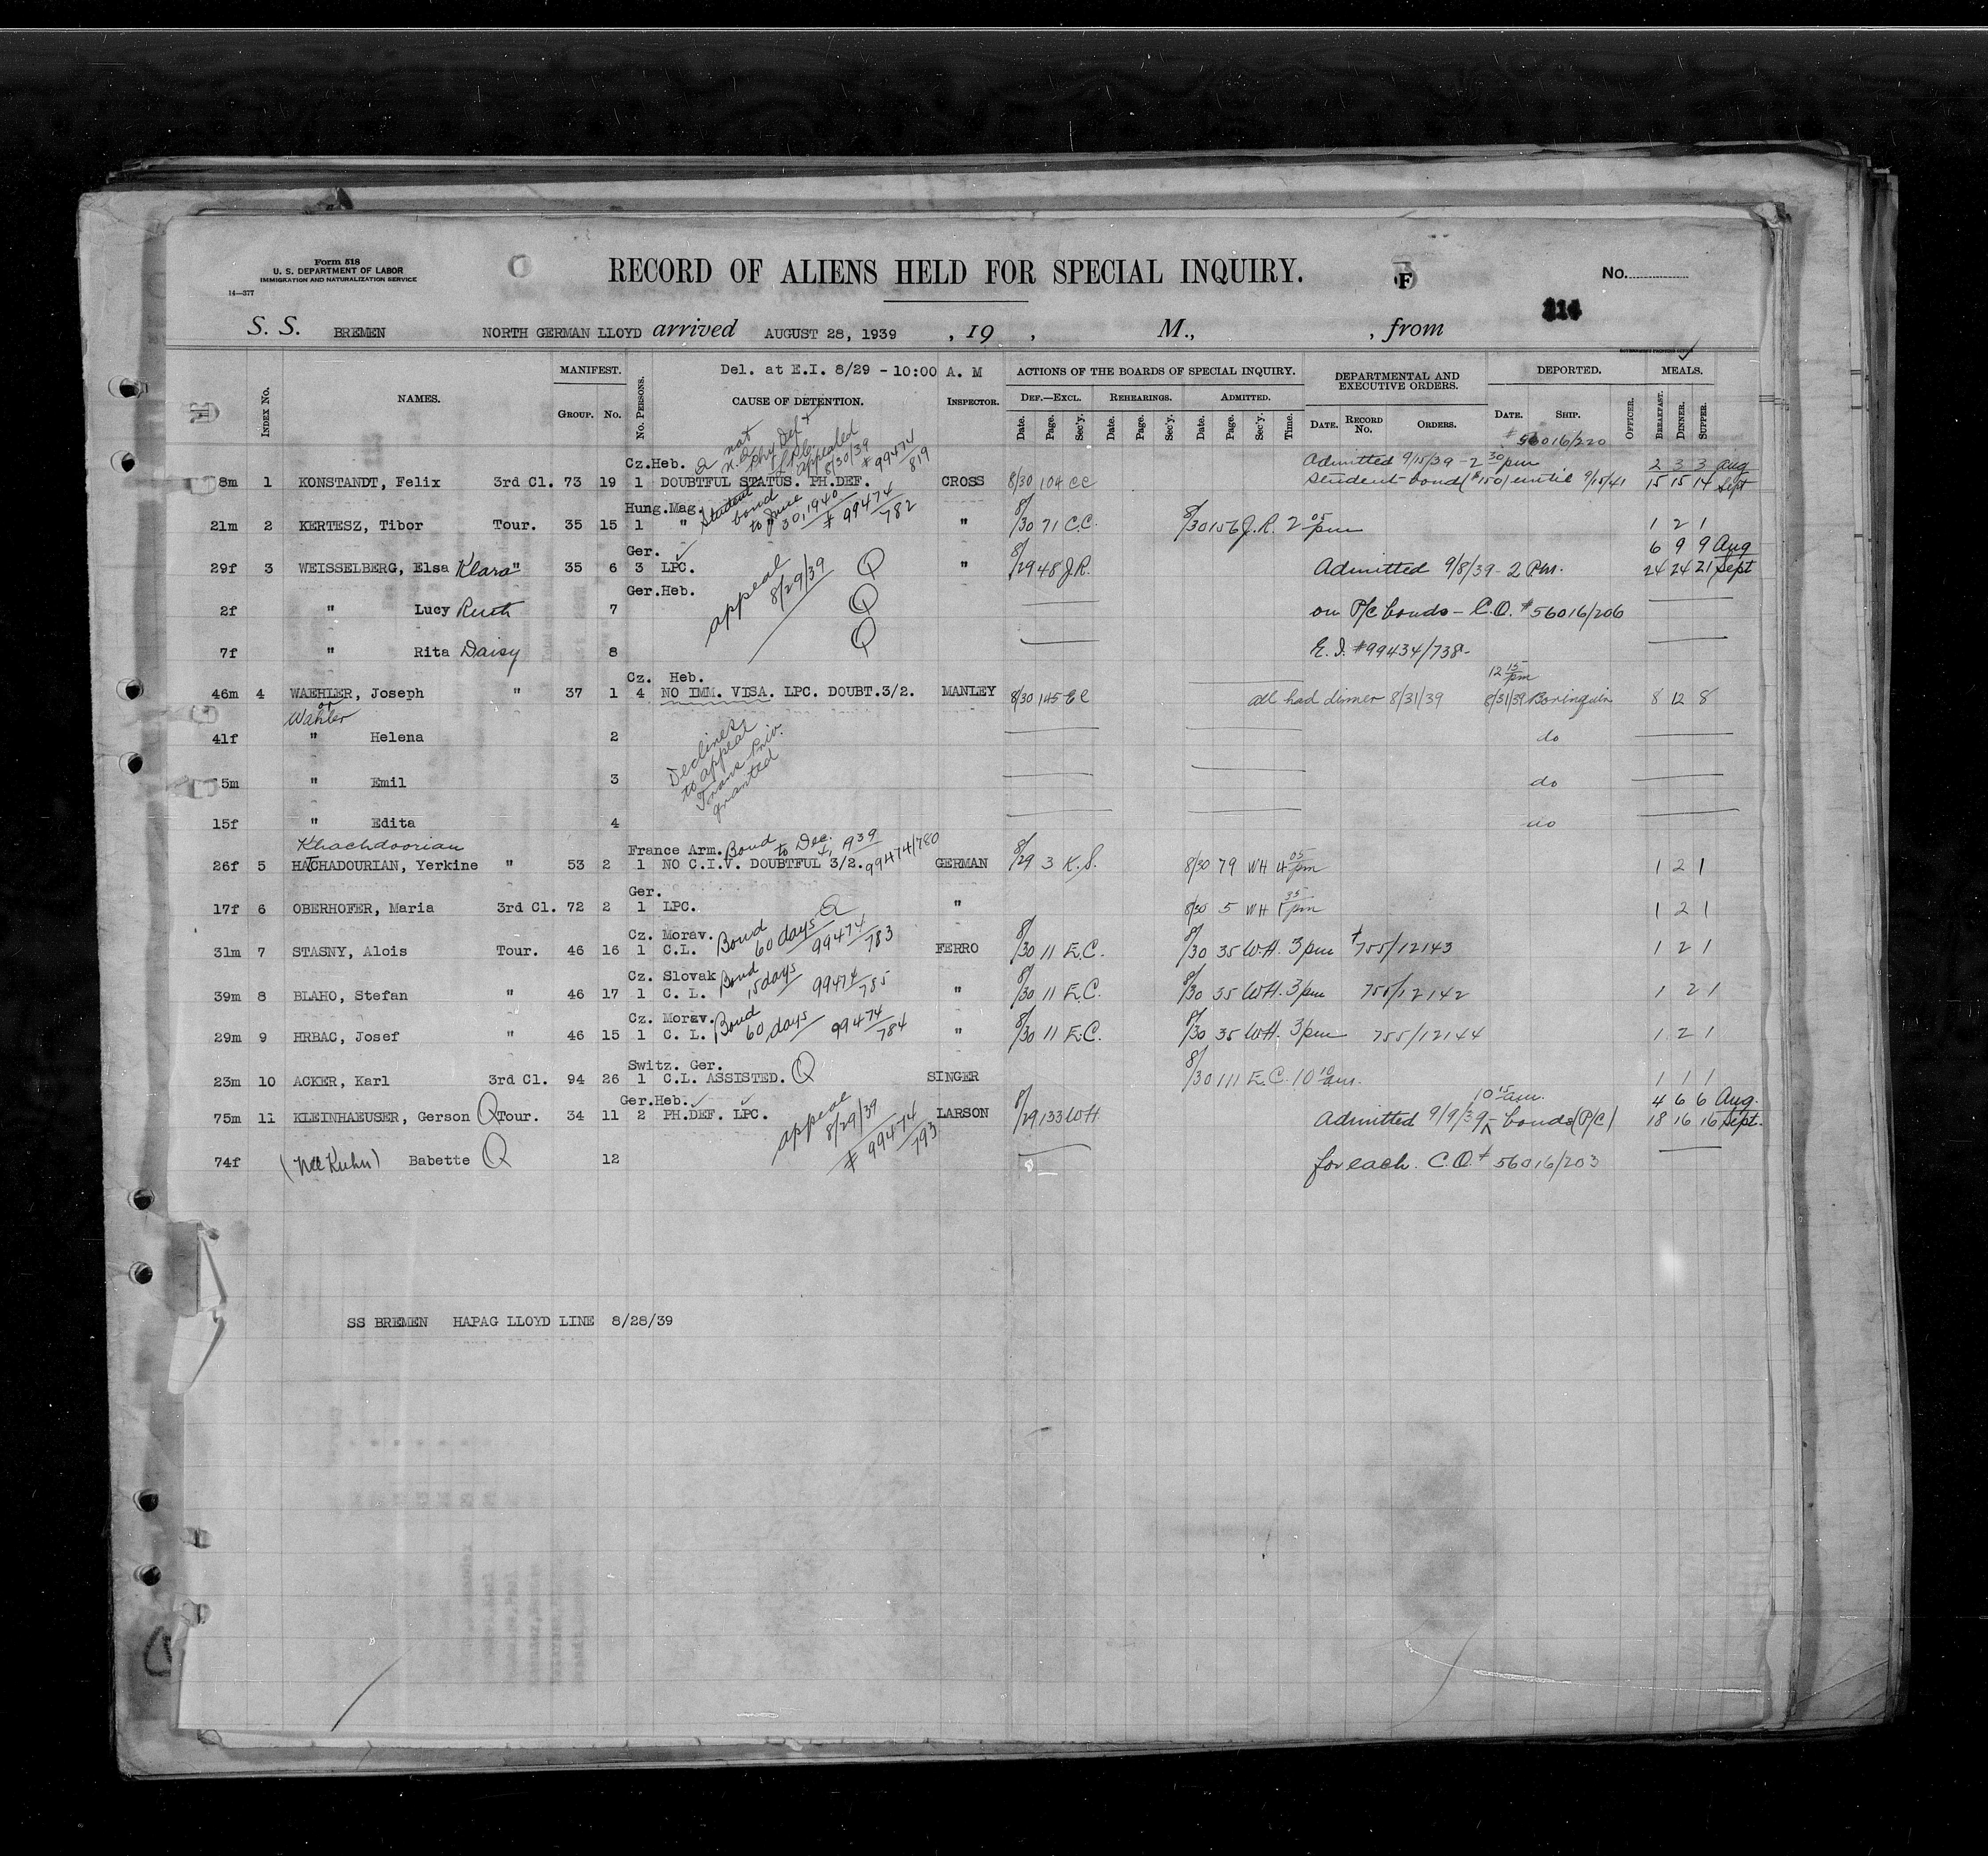 Form 518
U. S. DEPARTMENT OF LABOR
IMMIGRATION AND NATURALIZATION SERVICE
14—377
RECORD OF ALIENS HELD FOR SPECIAL INQUIRY.
F
No.
214
S. S. BREMEN NORTH GERMAN LLOYD arrived AUGUST 28, 1939 , 19 , M., , from
INDEX No. NAMES. MANIFEST. GROUP. No. No. PERSONS. Del. at E.I. 8/29 - 10:00 A. M CAUSE OF DETENTION. INSPECTOR. ACTIONS OF THE BOARDS OF SPECIAL INQUIRY. DEPARTMENTAL AND EXECUTIVE ORDERS. DEPORTED. MEALS.
DEF.—EXCL. REHEARINGS. ADMITTED.
Date. Page. Sec'y. Date. Page. Sec'y. Date. Page. Sec'y. Time. DATE. RECORD No. ORDERS. DATE. SHIP. OFFICER. BREAKFAST. DINNER. SUPPER.
# 56016/220
Cz.Heb. appealed 8/30/39 # 99474/819 Admitted 9/15/39 - 2 30 pm 2 3 3 Aug
8m 1 KONSTANDT, Felix 3rd Cl. 73 19 1 DOUBTFUL STATUS. PH.DEF. CROSS 8/30 104 CC Student bond ($150) until 9/15/41 15 15 14 Sept
Hung.Mag. Student bond to June 30, 1940 # 99474/782
21m 2 KERTESZ, Tibor Tour. 35 15 1 " " 8/30 71 C.C. 8/30 156 J.R. 2 05 pm 1 2 1
Ger. 6 9 9 Aug
29f 3 WEISSELBERG, Elsa Klara " 35 6 3 LPC. appeal 8/29/39 Q " 8/29 48 J.R. Admitted 9/8/39 - 2 Pm. 24 24 21 Sept
Ger.Heb.
2f " Lucy Ruth 7 Q on P/c bonds - C.O. # 56016/206
7f " Rita Daisy 8 Q E.I. # 99434/738-
Cz. Heb. 12 15 pm
46m 4 WAEHLER, Joseph " 37 1 4 NO IMM. VISA. LPC. DOUBT.3/2. MANLEY 8/30 145 EC all had dinner 8/31/39 8/31/39 Borinquin 8 12 8
or Wahler
41f " Helena 2 Declines to appeal Trans. Priv. granted do
5m " Emil 3 do
15f " Edita 4 do
Khachdoorian
France Arm. Bond to Dec. 1, 1939 99474/780
26f 5 HATCHADOURIAN, Yerkine " 53 2 1 NO C.I.V. DOUBTFUL 3/2. GERMAN 8/29 3 K.S. 8/30 79 WH 4 05 pm 1 2 1
Ger.
17f 6 OBERHOFER, Maria 3rd Cl. 72 2 1 LPC. Q " 8/30 5 WH 1 35 pm 1 2 1
Cz. Morav. Bond 60 days 99474/783
31m 7 STASNY, Alois Tour. 46 16 1 C.L. FERRO 8/30 11 E.C. 8/30 35 W.H. 3 pm # 755/12143 1 2 1
Cz. Slovak Bond 15 days 99474/785
39m 8 BLAHO, Stefan " 46 17 1 C. L. " 8/30 11 E.C. 8/30 35 W.H. 3 pm 755/12142 1 2 1
Cz. Morav. Bond 60 days 99474/784
29m 9 HRBAC, Josef " 46 15 1 C. L. " 8/30 11 E.C. 8/30 35 W.H. 3 pm 755/12144 1 2 1
Switz. Ger.
23m 10 ACKER, Karl 3rd Cl. 94 26 1 C.L. ASSISTED. Q SINGER 8/30 111 E.C. 10 10 am. 1 1 1
Ger.Heb. 10 15 am. 4 6 6 Aug.
75m 11 KLEINHAEUSER, Gerson Q Tour. 34 11 2 PH.DEF. LPC. appeal 8/29/39 # 99474/793 LARSON 8/29 133 WH Admitted 9/9/39 - bonds (P/C) 18 16 16 Sept.
74f (née Kuhn) Babette Q 12 for each. C.O. # 56016/203
SS BREMEN HAPAG LLOYD LINE 8/28/39